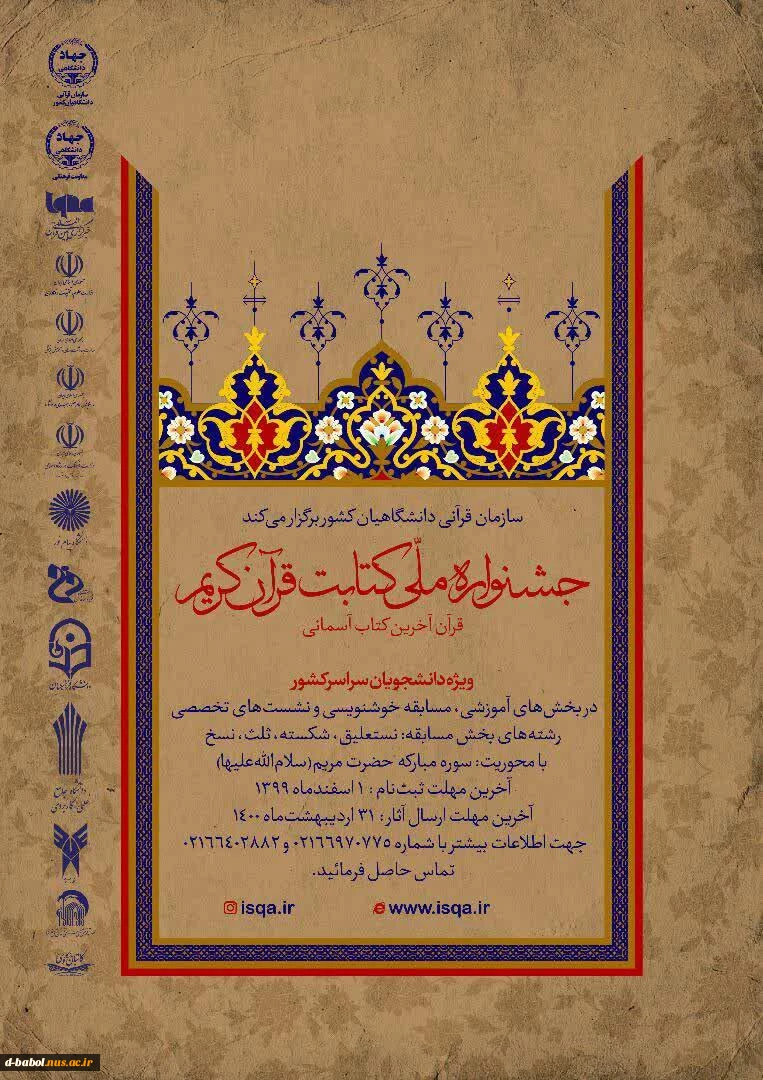 سازمان قرآنی دانشگاهیان کشور برگزار می‌کند
جشنواره ملّی کتابت قرآن کریم
قرآن آخرین کتاب آسمانی
ویژه دانشجویان سراسر کشور
در بخش‌های آموزشی، مسابقه خوشنویسی و نشست‌های تخصصی
رشته‌های بخش مسابقه: نستعلیق، شکسته، ثلث، نسخ
با محوریت: سوره مبارکه حضرت مریم(سلام‌الله‌علیها)
آخرین مهلت ثبت‌نام : ۱ اسفندماه ۱۳۹۹
آخرین مهلت ارسال آثار: ۳۱ اردیبهشت‌ماه ۱۴۰۰
جهت اطلاعات بیشتر با شماره ۰۲۱۶۶۹۷۰۷۷۵ و ۰۲۱۶۶۴۰۲۸۸۲
تماس حاصل فرمائید.
isqa.ir www.isqa.ir
جهاد
دانشگاهی
سازمان قرآنی
دانشگاهیان کشور
جهاد
دانشگاهی
معاونت فرهنگی
iqna
دانشگاه پیام نور
دانشگاه فرهنگیان
دانشگاه جامع
علمی کاربردی
d-babol.nus.ac.ir